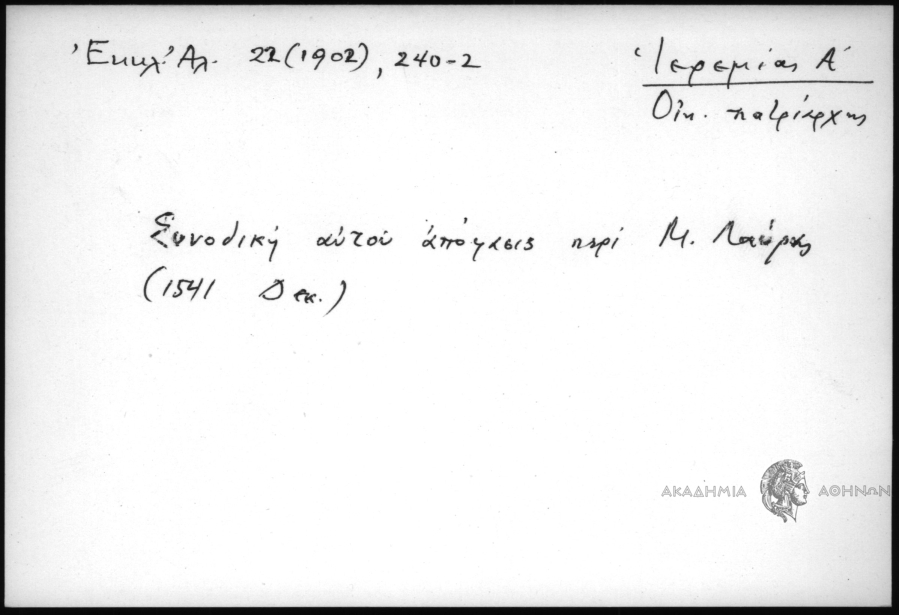 Ἐκκλ. Ἀλ. 22 (1902), 240-2
Ἱερεμίας Α΄
Οἰκ. πατριάρχης
Συνοδική αὐτοῦ ἀπόφασις περί Μ. Λαύρας
(1541 Δεκ.)
ΑΚΑΔΗΜΙΑ ΑΘΗΝΩΝ